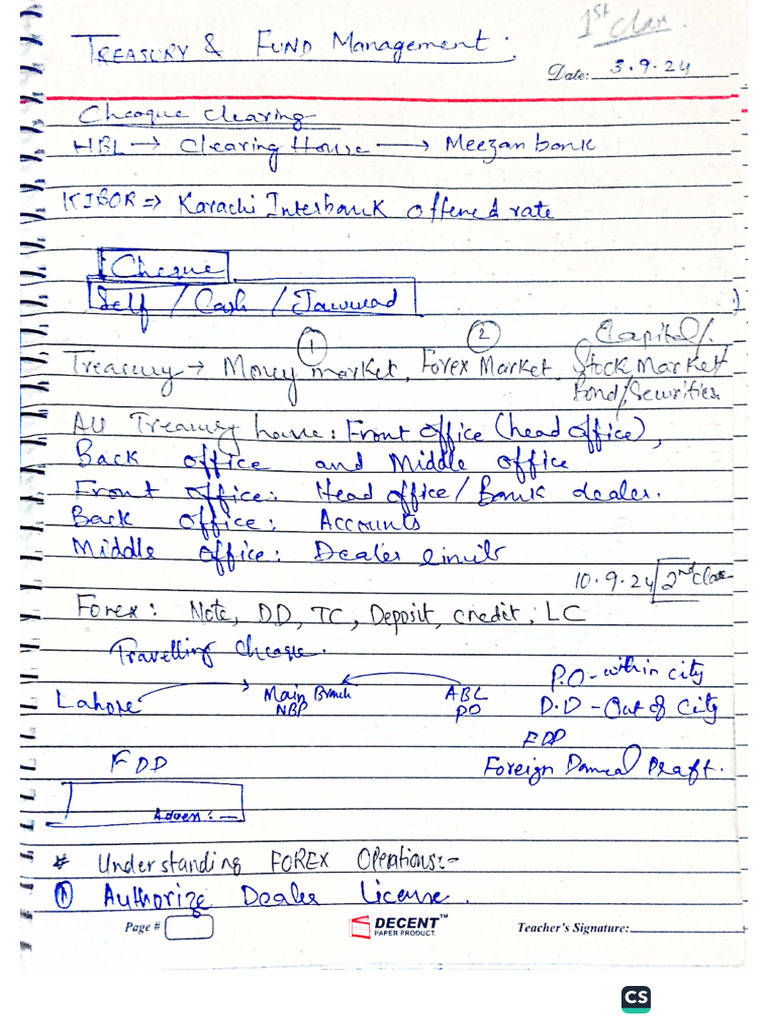 1st Class
TREASURY & FUND Management:
Date: 3.9.24
Cheaque clearing
HBL → Clearing House → Meezan bank
KIBOR ⇒ Karachi Interbank offered rate
Cheque
Self / Cash / Jawwad
① ② Capital/
Treasury → Money market, Forex Market, Stock Market
Bond/Securities.
All Treasury have: Front office (head office),
Back office and Middle office
Front office: Head office/Bank dealer.
Back office: Accounts
Middle office: Dealer limit
10.9.24 2nd Class
Forex: Note, DD, TC, Deposit, credit, LC
Travelling Cheaque.
P.O - within city
Lahore → Main Branch ← ABL
NBP PO D.D - Out of City
FDD
FDD Foreign Demand Draft.
* Understanding FOREX Operations:-
① Authorize Dealer License.
Page # DECENT™ Teacher's Signature:
PAPER PRODUCT
CS